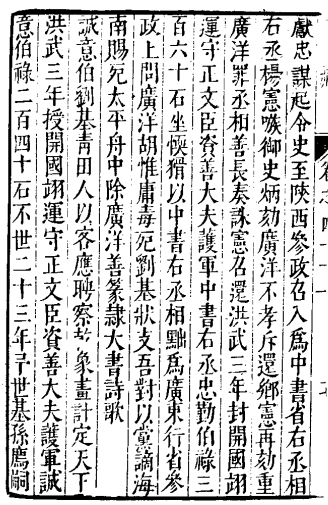 獻忠謀起令史至陝西參政召入爲中書省右丞相
右丞楊憲嗾御史炳劾廣洋不孝斥還鄉憲再劾重
廣洋罪丞相善長奏誅憲召還洪武三年封開國翊
運守正文臣資善大夫護軍中書右丞忠勤伯祿三
百六十石坐懊猾以中書右丞相黜爲廣東行省參
政上問廣洋胡惟庸毒死劉基狀支吾對以黨謫海
南賜死太平舟中除廣洋善篆隷大書詩歌
誠意伯劉基青田人以客應聘察乾象畫計定天下
洪武三年授開國翊運守正文臣資善大夫護軍誠
意伯祿二百四十石不世二十三年予世基孫廌嗣